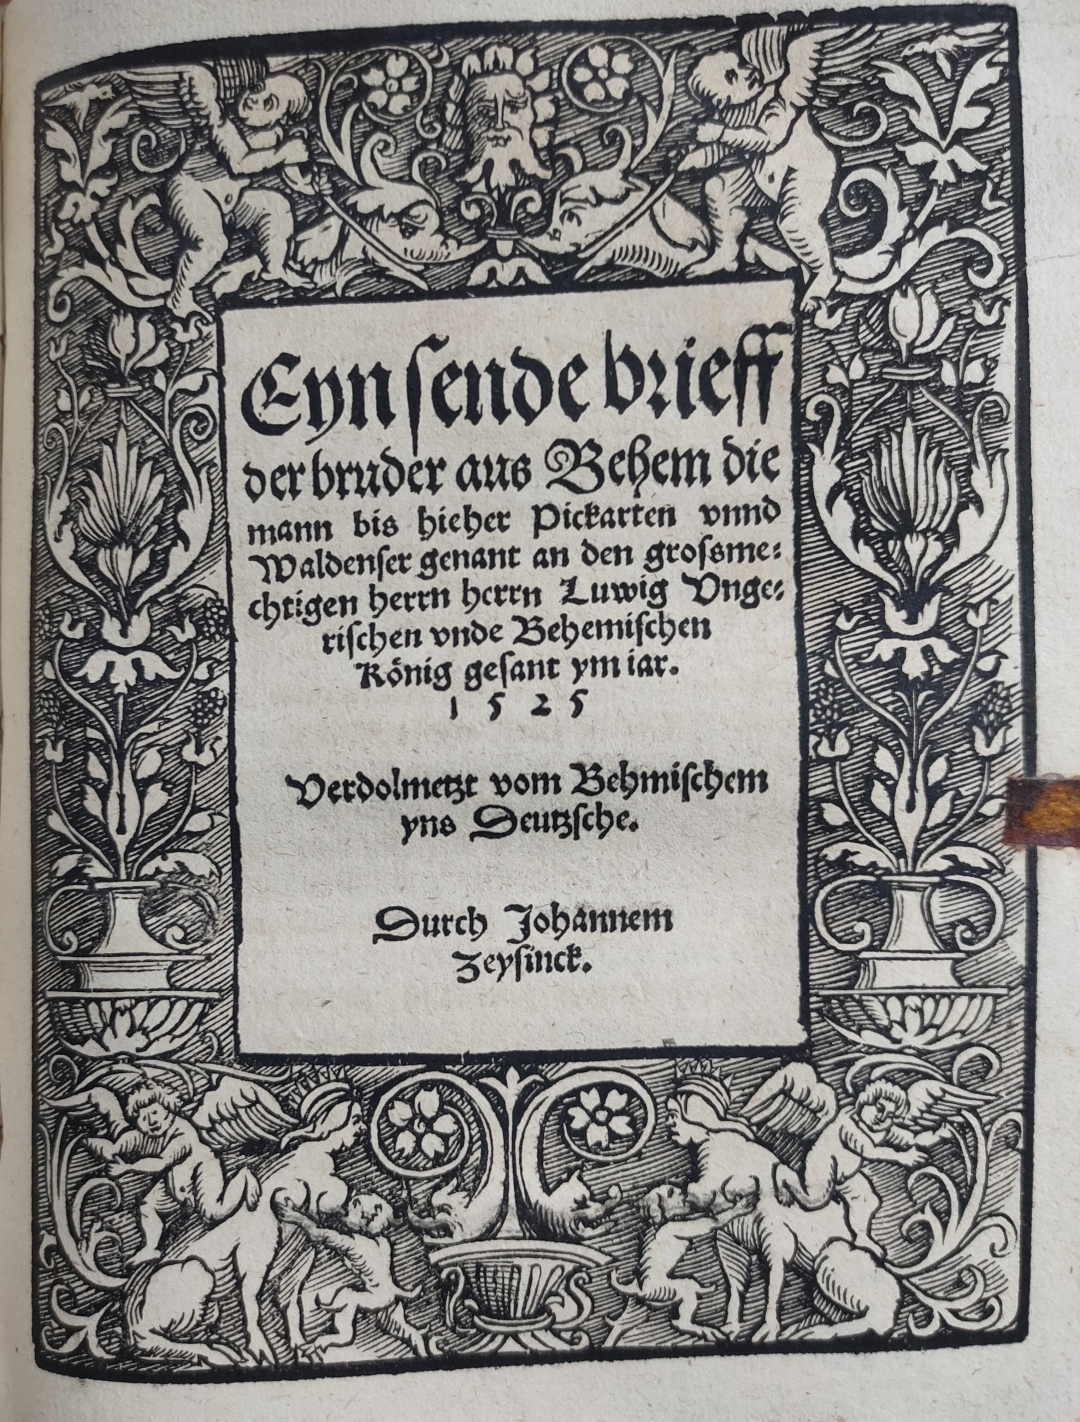 Eyn ſende brieff
der bruder aus Behem die
mann bis hieher Pickarten vnnd
Waldenſer genant an den groſsme⸗
chtigen herrn herrn Luwig Vnge⸗
riſchen vnde Behemiſchen
König geſant ym iar.
1 5 2 5
Verdolmetzt vom Behmiſchem
yns Deutzſche.
Durch Johannem
Zeyſinck.